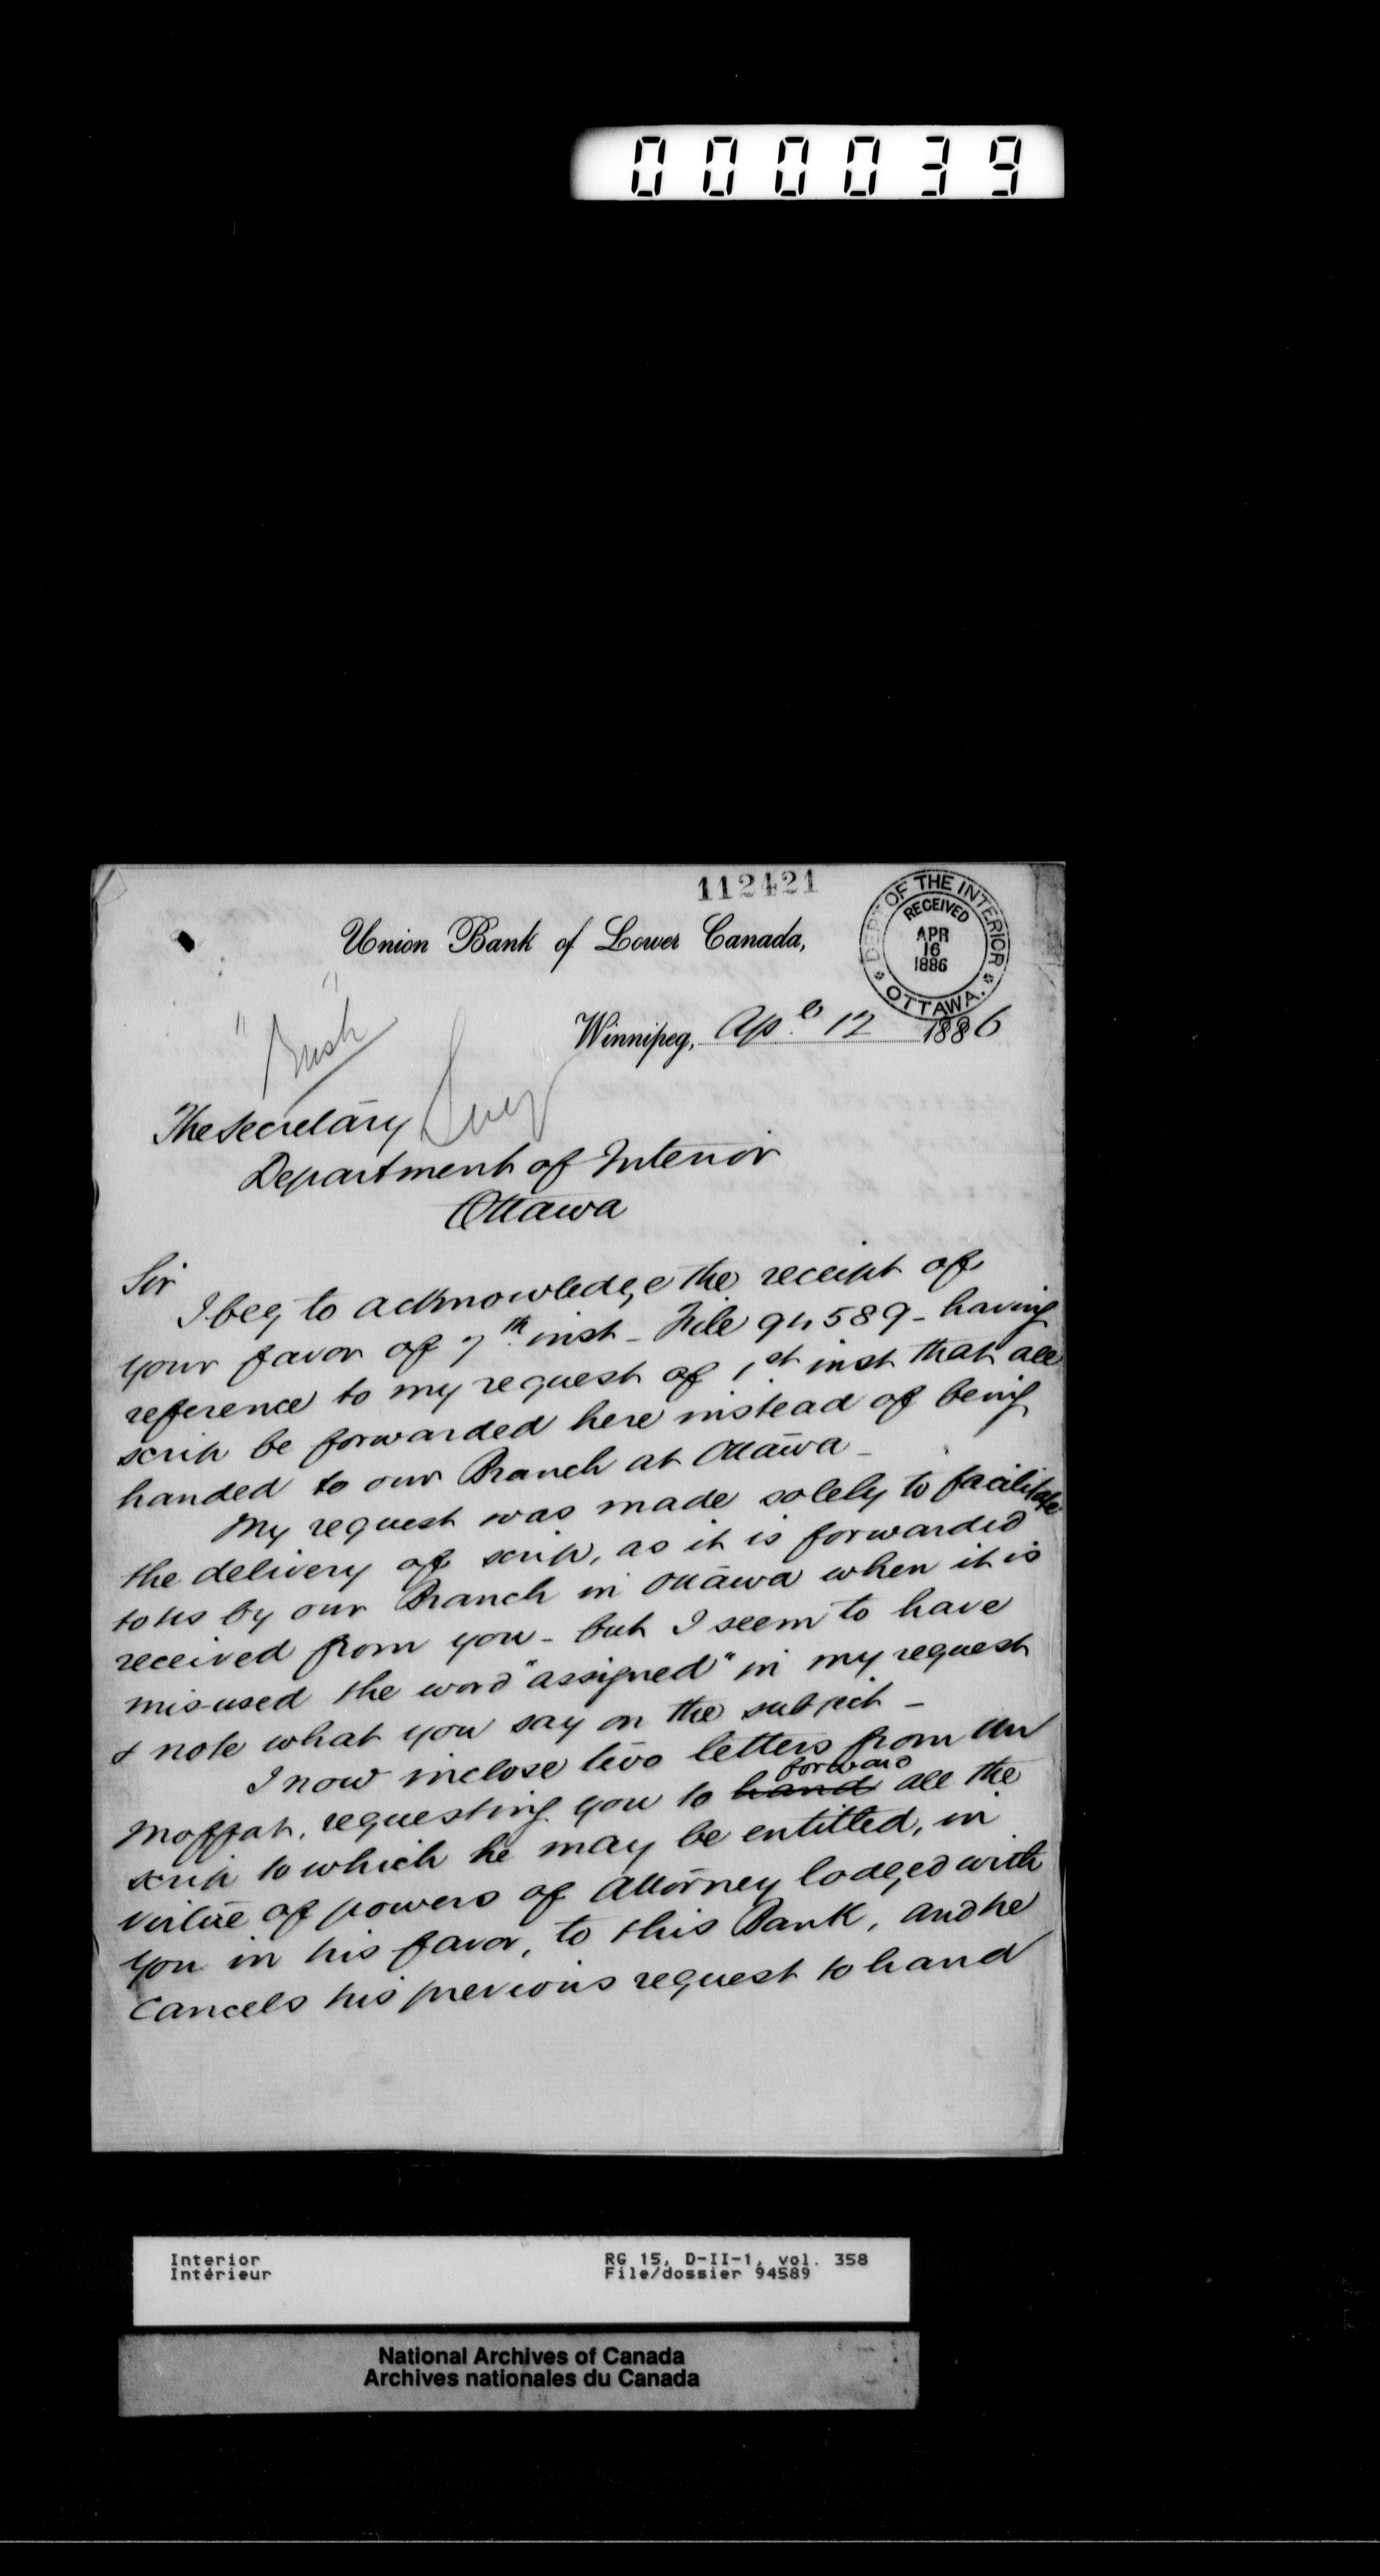 000039
112421
DEPT OF THE INTERIOR
RECEIVED
APR
16
1886
OTTAWA.
Union Bank of Lower Canada,
Winnipeg, Apl 12 1886
The Secretary
Department of Interior
Ottawa
Sir
I beg to acknowledge the receipt of
your favor of 7th inst - File 94589 - having
reference to my request of 1st inst that all
scrip be forwarded here instead of being
handed to our Branch at Ottawa -
My request was made solely to facilitate
the delivery of scrip, as it is forwarded
to us by our Branch in Ottawa when it is
received from you - but I seem to have
mis-used the word "assigned" in my request
& note what you say on the subject -
I now inclose two letters from Mr
forward
Moffat, requesting you to hand all the
scrip to which he may be entitled, in
virtue of powers of Attorney lodged with
you in his favor, to this Bank, and he
cancels his previous request to hand
Interior RG 15, D-II-1, vol. 358
Intérieur File/dossier 94589
National Archives of Canada
Archives nationales du Canada